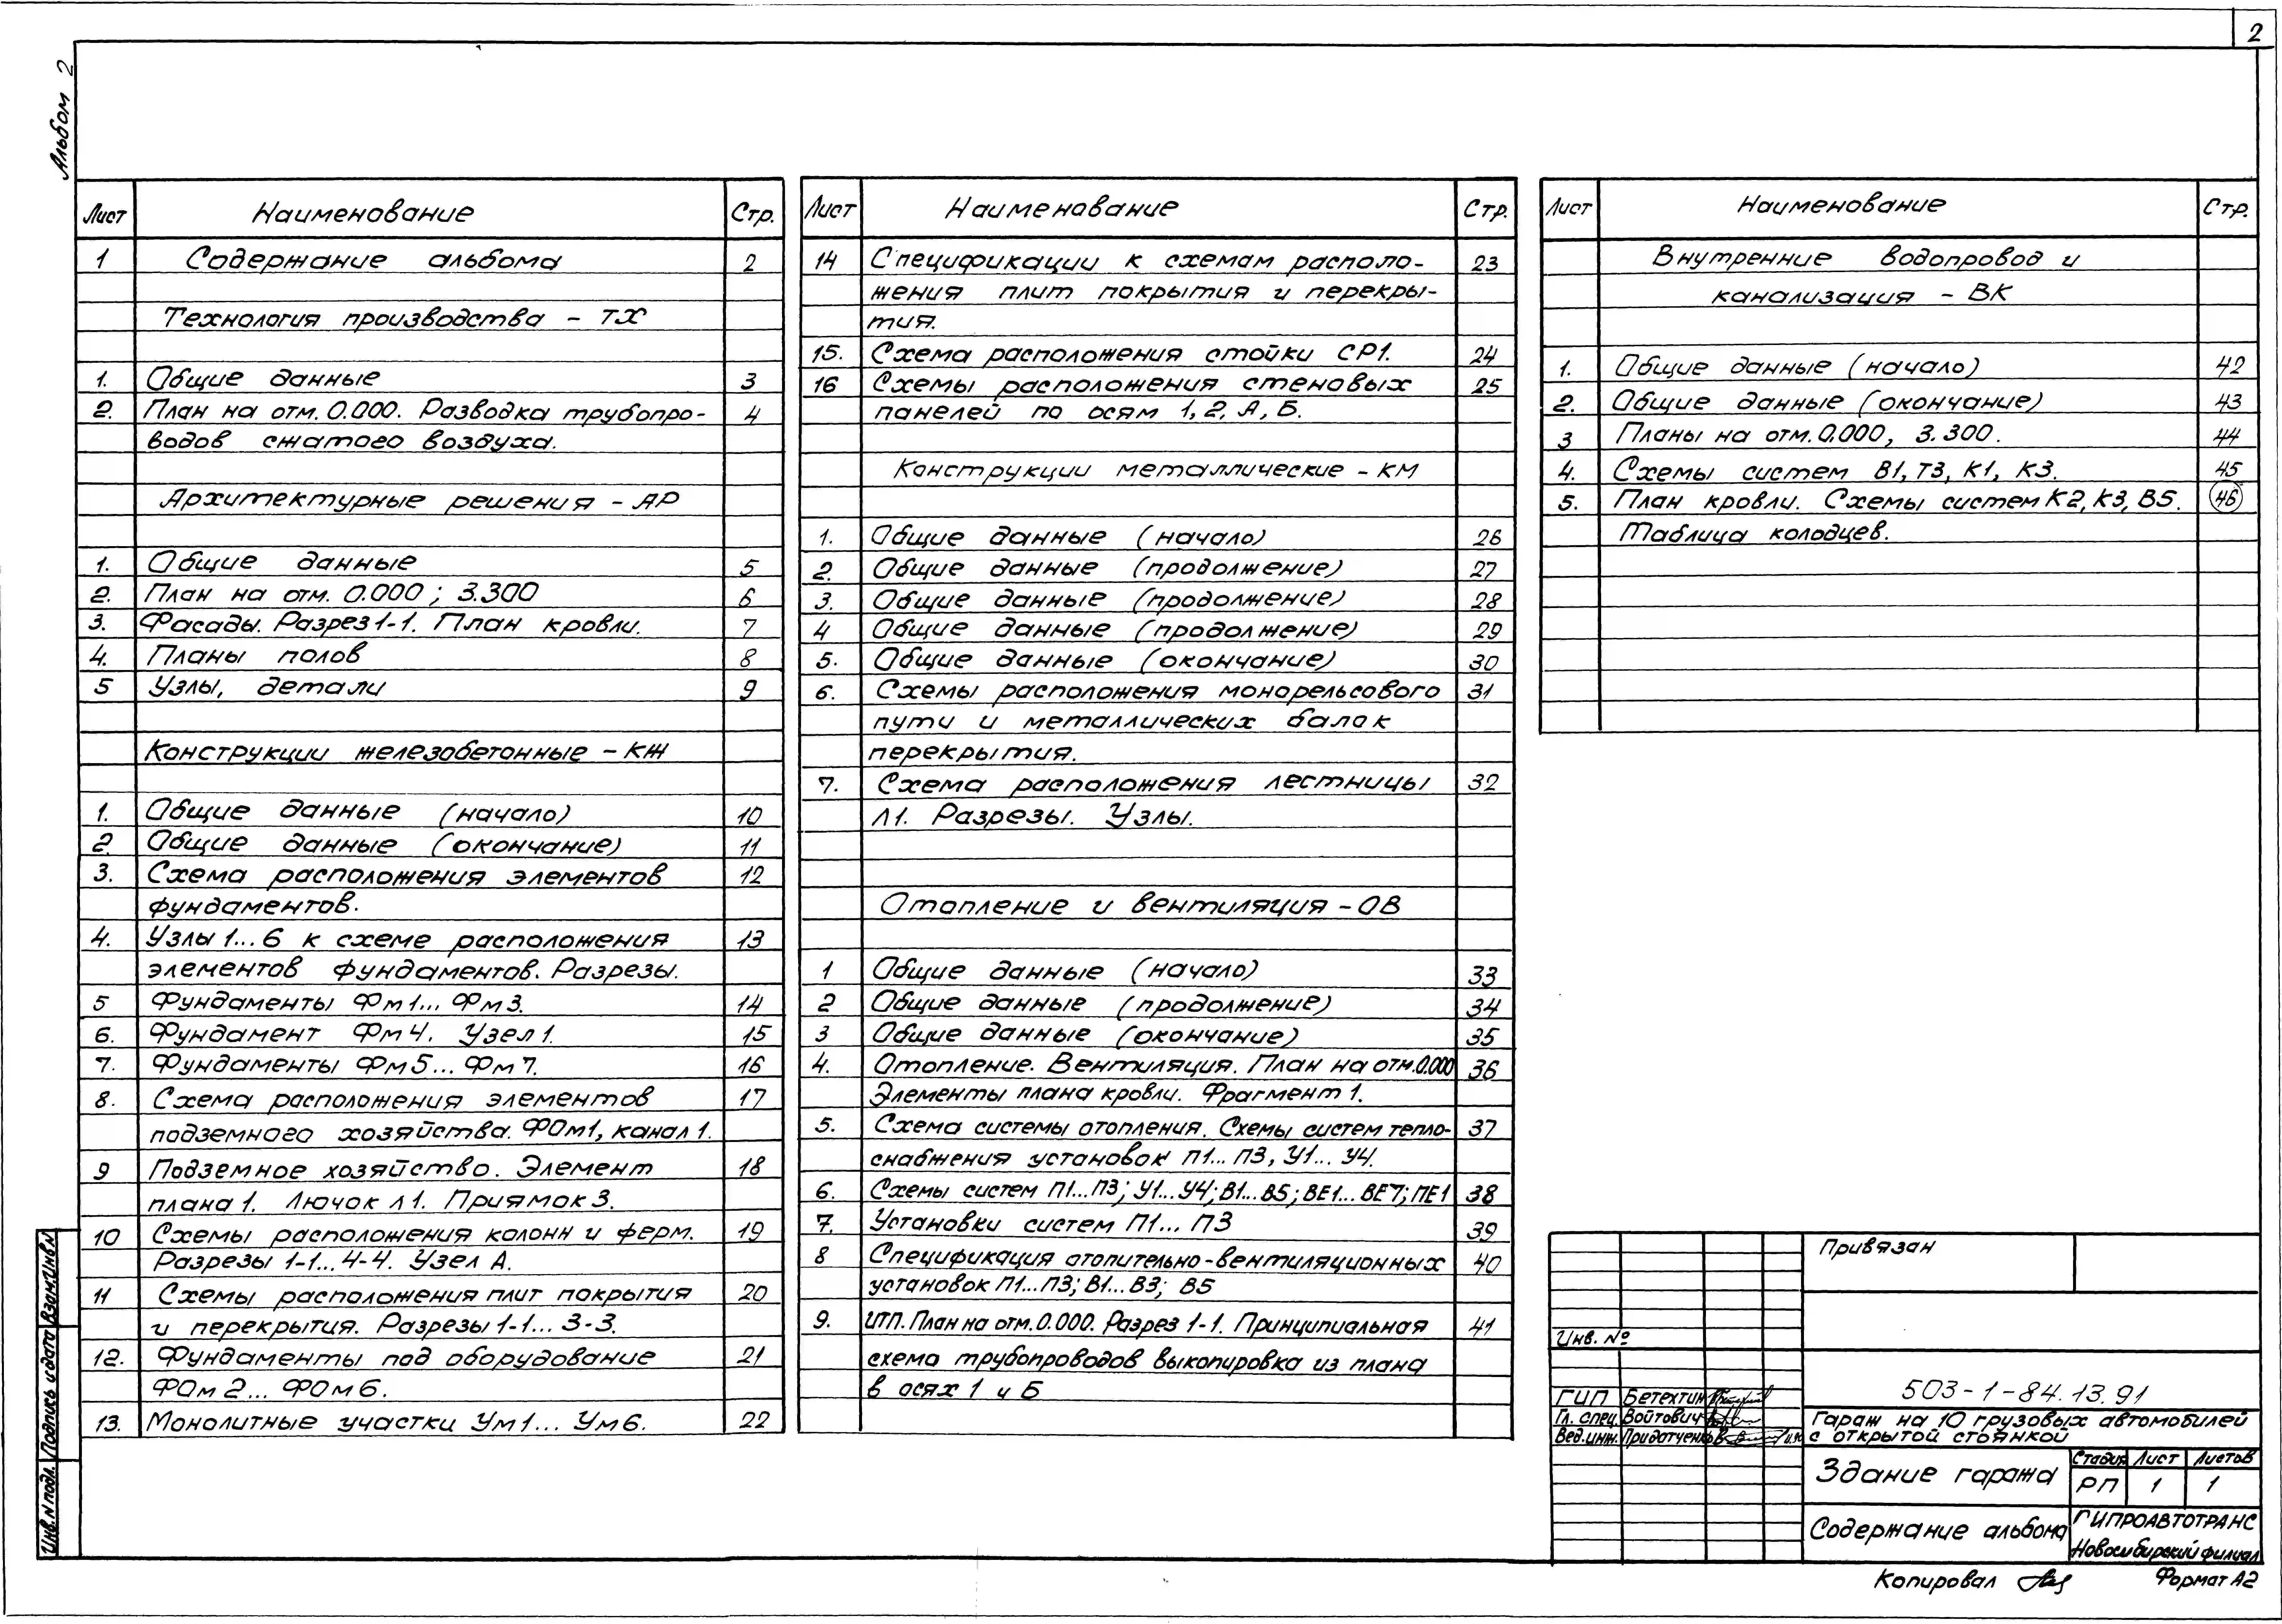 2
Альбом 2
Лист Наименование Стр.
1 Содержание альбома 2
Технология производства - ТХ
1. Общие данные 3
2. План на отм. 0.000. Разводка трубопро- 4
водов сжатого воздуха.
Архитектурные решения - АР
1. Общие данные 5
2. План на отм. 0.000; 3.300 6
3. Фасады. Разрез 1-1. План кровли. 7
4. Планы полов 8
5 Узлы, детали 9
Конструкции железобетонные - КЖ
1. Общие данные (начало) 10
2. Общие данные (окончание) 11
3. Схема расположения элементов 12
фундаментов.
4. Узлы 1...6 к схеме расположения 13
элементов фундаментов. Разрезы.
5 Фундаменты Фм1... Фм3. 14
6. Фундамент Фм4. Узел 1. 15
7. Фундаменты Фм5... Фм7. 16
8. Схема расположения элементов 17
подземного хозяйства. ФОм1, канал 1.
9 Подземное хозяйство. Элемент 18
плана 1. Лючок Л1. Приямок 3.
10 Схемы расположения колонн и ферм. 19
Разрезы 1-1...4-4. Узел А.
11 Схемы расположения плит покрытия 20
и перекрытия. Разрезы 1-1... 3-3.
12. Фундаменты под оборудование 21
ФОм2... ФОм6.
13. Монолитные участки Ум1... Ум6. 22
Лист Наименование Стр.
14 Спецификации к схемам располо- 23
жения плит покрытия и перекры-
тия.
15. Схема расположения стойки СР1. 24
16 Схемы расположения стеновых 25
панелей по осям 1, 2, А, Б.
Конструкции металлические - КМ
1. Общие данные (начало) 26
2. Общие данные (продолжение) 27
3. Общие данные (продолжение) 28
4 Общие данные (продолжение) 29
5. Общие данные (окончание) 30
6. Схемы расположения монорельсового 31
пути и металлических балок
перекрытия.
7. Схема расположения лестницы 32
Л1. Разрезы. Узлы.
Отопление и вентиляция - ОВ
1 Общие данные (начало) 33
2 Общие данные (продолжение) 34
3 Общие данные (окончание) 35
4. Отопление. Вентиляция. План на отм. 0.000 36
Элементы плана кровли. Фрагмент 1.
5. Схема системы отопления. Схемы систем тепло- 37
снабжения установок П1... П3, У1... У4.
6. Схемы систем П1...П3; У1...У4; В1...В5; ВЕ1...ВЕ7; ПЕ1 38
7. Установки систем П1... П3 39
8 Спецификация отопительно-вентиляционных 40
установок П1...П3; В1...В3; В5
9. ИТП. План на отм. 0.000. Разрез 1-1. Принципиальная 41
схема трубопроводов выкопировка из плана
в осях 1 и Б
Лист Наименование Стр.
Внутренние водопровод и
канализация - ВК
1. Общие данные (начало) 42
2. Общие данные (окончание) 43
3 Планы на отм. 0.000, 3.300. 44
4. Схемы систем В1, Т3, К1, К3. 45
5. План кровли. Схемы систем К2, К3, В5. 46
Таблица колодцев.
Привязан
Инв. №
503-1-84.13.91
ГИП Бетехтин
Гл. спец. Войтович
Вед. инж. Придатченко
Гараж на 10 грузовых автомобилей
с открытой стоянкой
Здание гаража
Стадия Лист Листов
РП 1 1
Содержание альбома
ГИПРОАВТОТРАНС
Новосибирский филиал
Копировал
Формат А2
Инв. N подл. Подпись и дата Взам. Инв. N